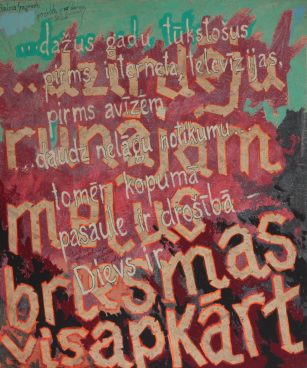 ...dažus gadu tūkstošus
pirms interneta, televīzijas,
...dzirdēju
pirms avīzēm
runājam
...daudz nelāgu notikumu...
tomēr kopumā
melus
pasaule ir drošībā –
Dievs ir
briesmas
visapkārt